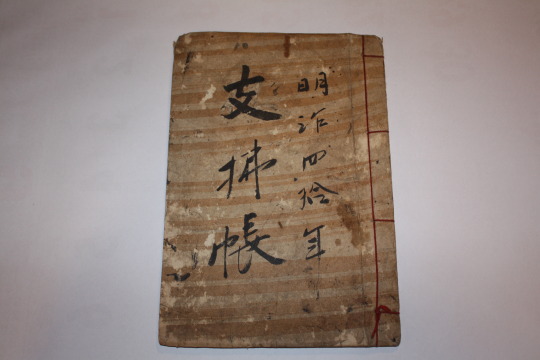 明治四拾年
支拂帳